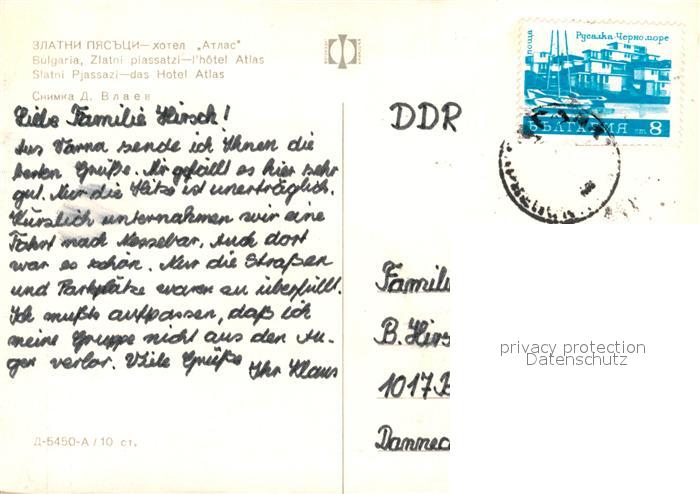 ЗЛАТНИ ПЯСЪЦИ — хотел „Атлас"
Bulgaria, Zlatni piassatzi—l'hôtel Atlas
Slatni Pjassazi—das Hotel Atlas
Снимка Д. Влаев
Liebe Familie Hirsch!
Aus Varna sende ich Ihnen die
besten Grüße. Mir gefällt es hier sehr
gut. Nur die Hitze ist unerträglich.
Kürzlich unternahmen wir eine
Fahrt nach Nessebar. Auch dort
war es schön. Nur die Straßen
und Parkplätze waren zu überfüllt.
Ich mußte aufpassen, daß ich
meine Gruppe nicht aus den Au-
gen verlor. Viele Grüße
Ihr Klaus
Д-5450-А / 10 ст.
DDR
поща
Русалка-Черноморе
БЪЛГАРИЯ ст 8
Famili
B. Hirs
1017 B
Dannec
privacy protection
Datenschutz